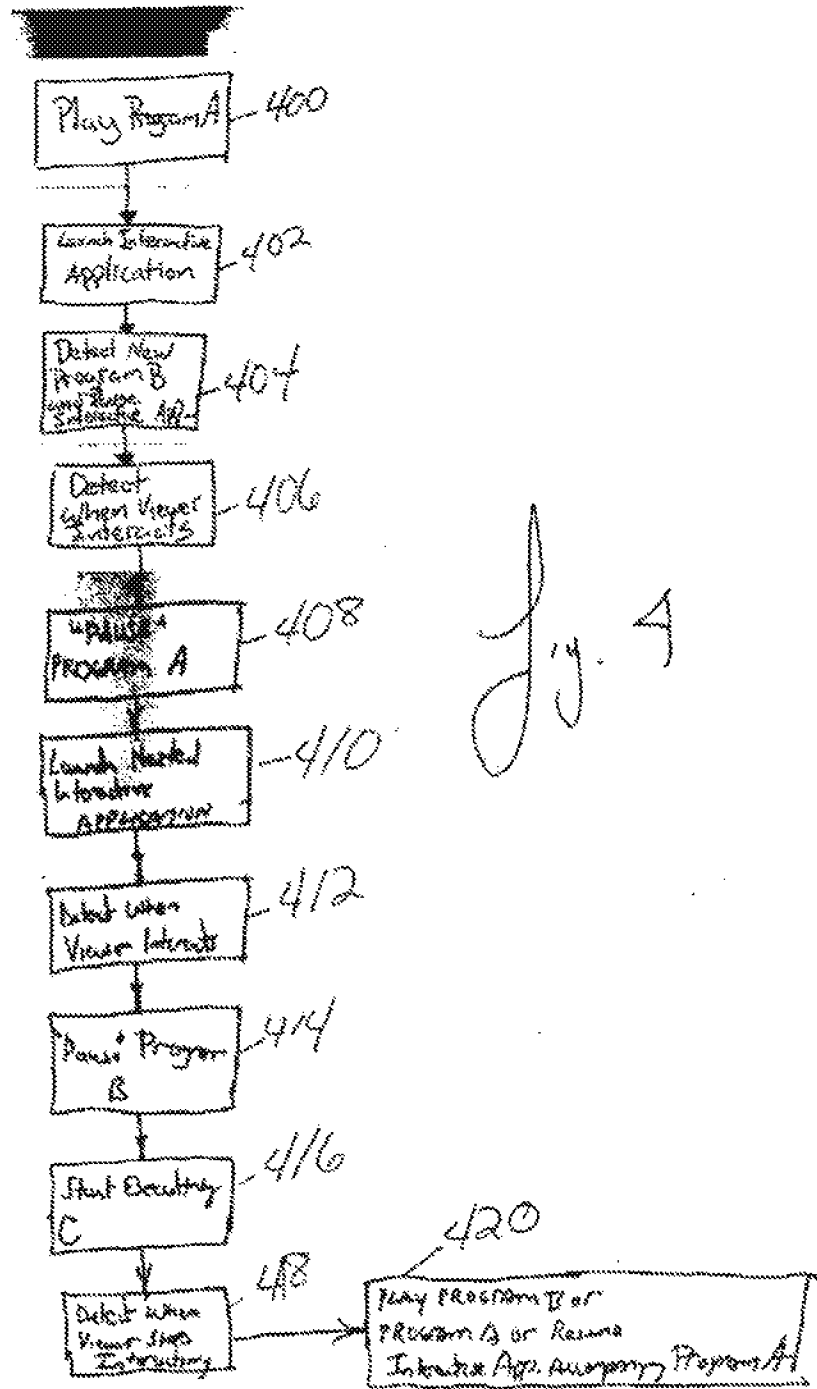 Play Program A
400
Launch Interactive
Application
402
Detect New
Program B
Interactive App.
404
Detect
When Viewer
Interacts
406
"PAUSE"
PROGRAM A
408
Launch Nested
Interactive
APPLICATION
410
Detect When
Viewer Interacts
412
"Pause" Program
B
414
Start Executing
C
416
Detect When
Viewer Stops
Interacting
418
420
PLAY PROGRAM B or
PROGRAM or Resume
Interactive App. Accompany Program A
Fig. 4